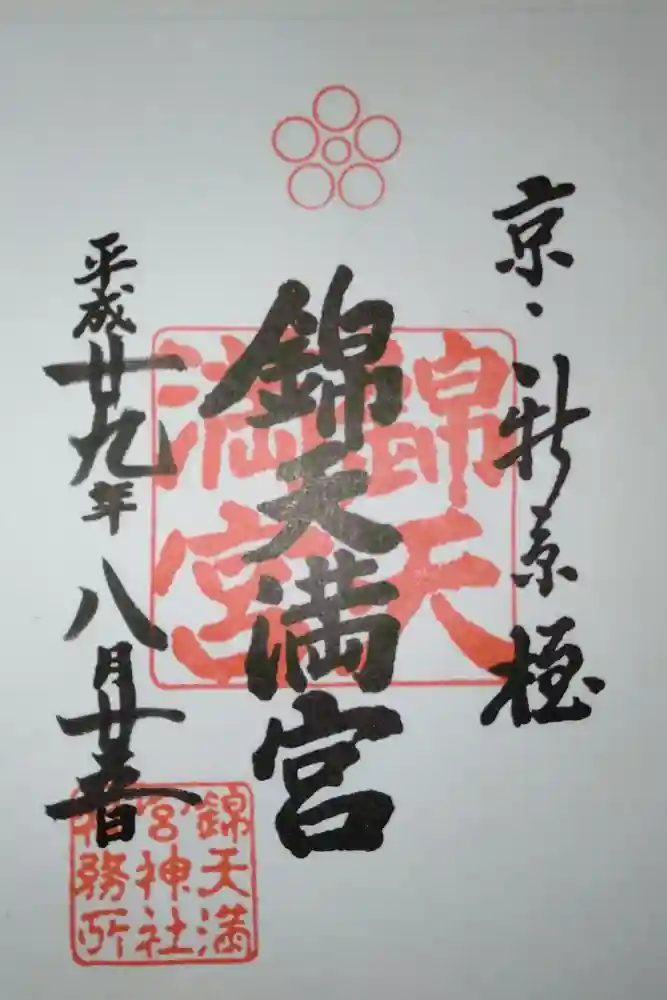 京・新京極
錦天満宮
平成廿九年八月廿三日
錦天
満宮
錦天満
宮神社
務所